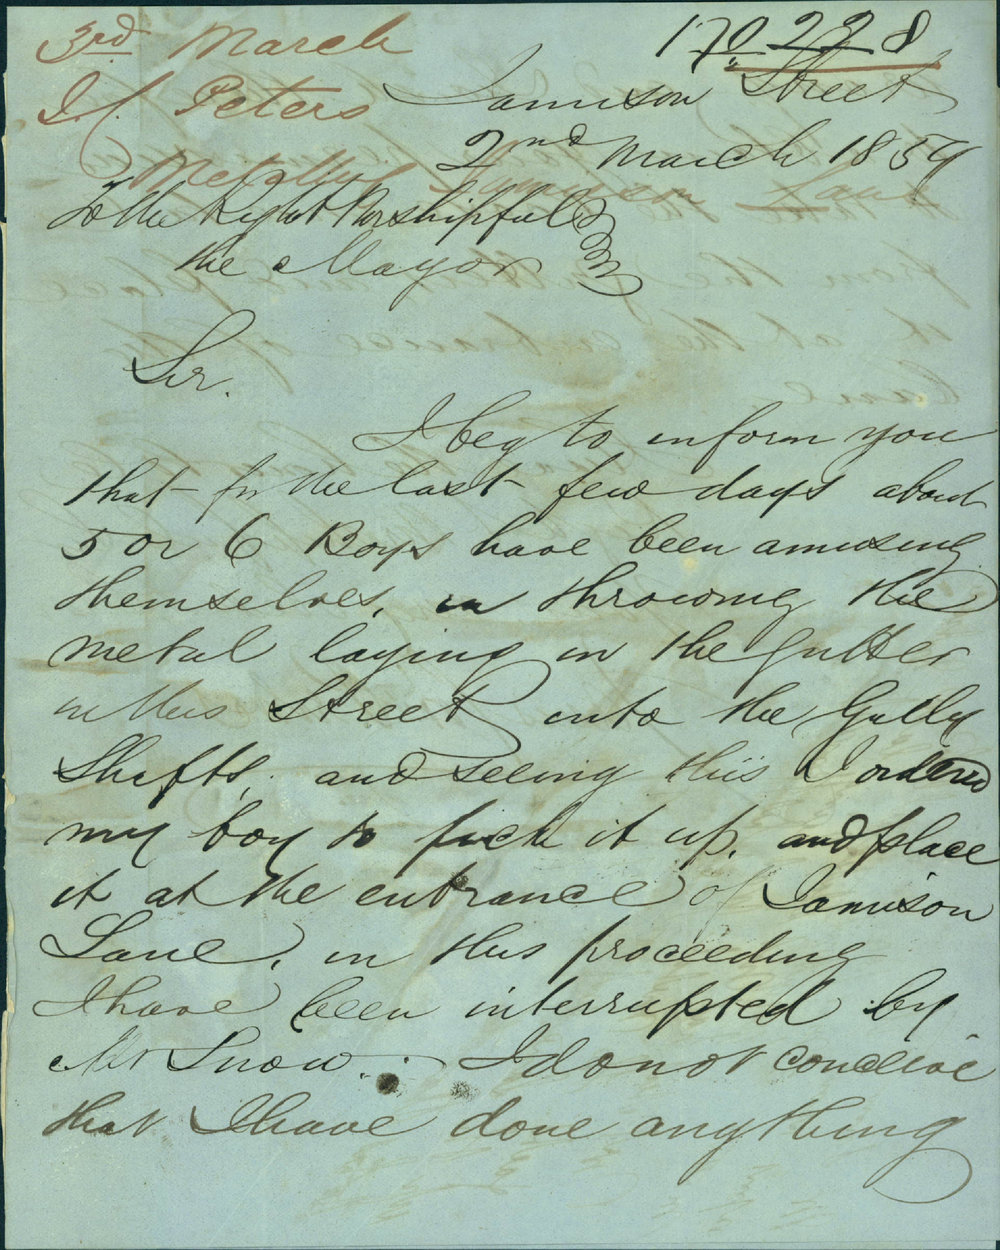 3rd March
J. C. Peters
Metalling Jamison Lane
170 22 8
Jamison Street
2nd March 1859
To the Right Worshipful
the Mayor
Sir.
I beg to inform you
that for the last few days about
5 or 6 Boys have been amusing
themselves, in throwing the
metal laying in the gutter
in this Street into the Gully
Shafts, and seeing this I ordered
my boy to pick it up, and place
it at the entrance of Jamison
Lane, in this proceeding
I have been interrupted by
Mr Snow. I do not conceive
that I have done anything